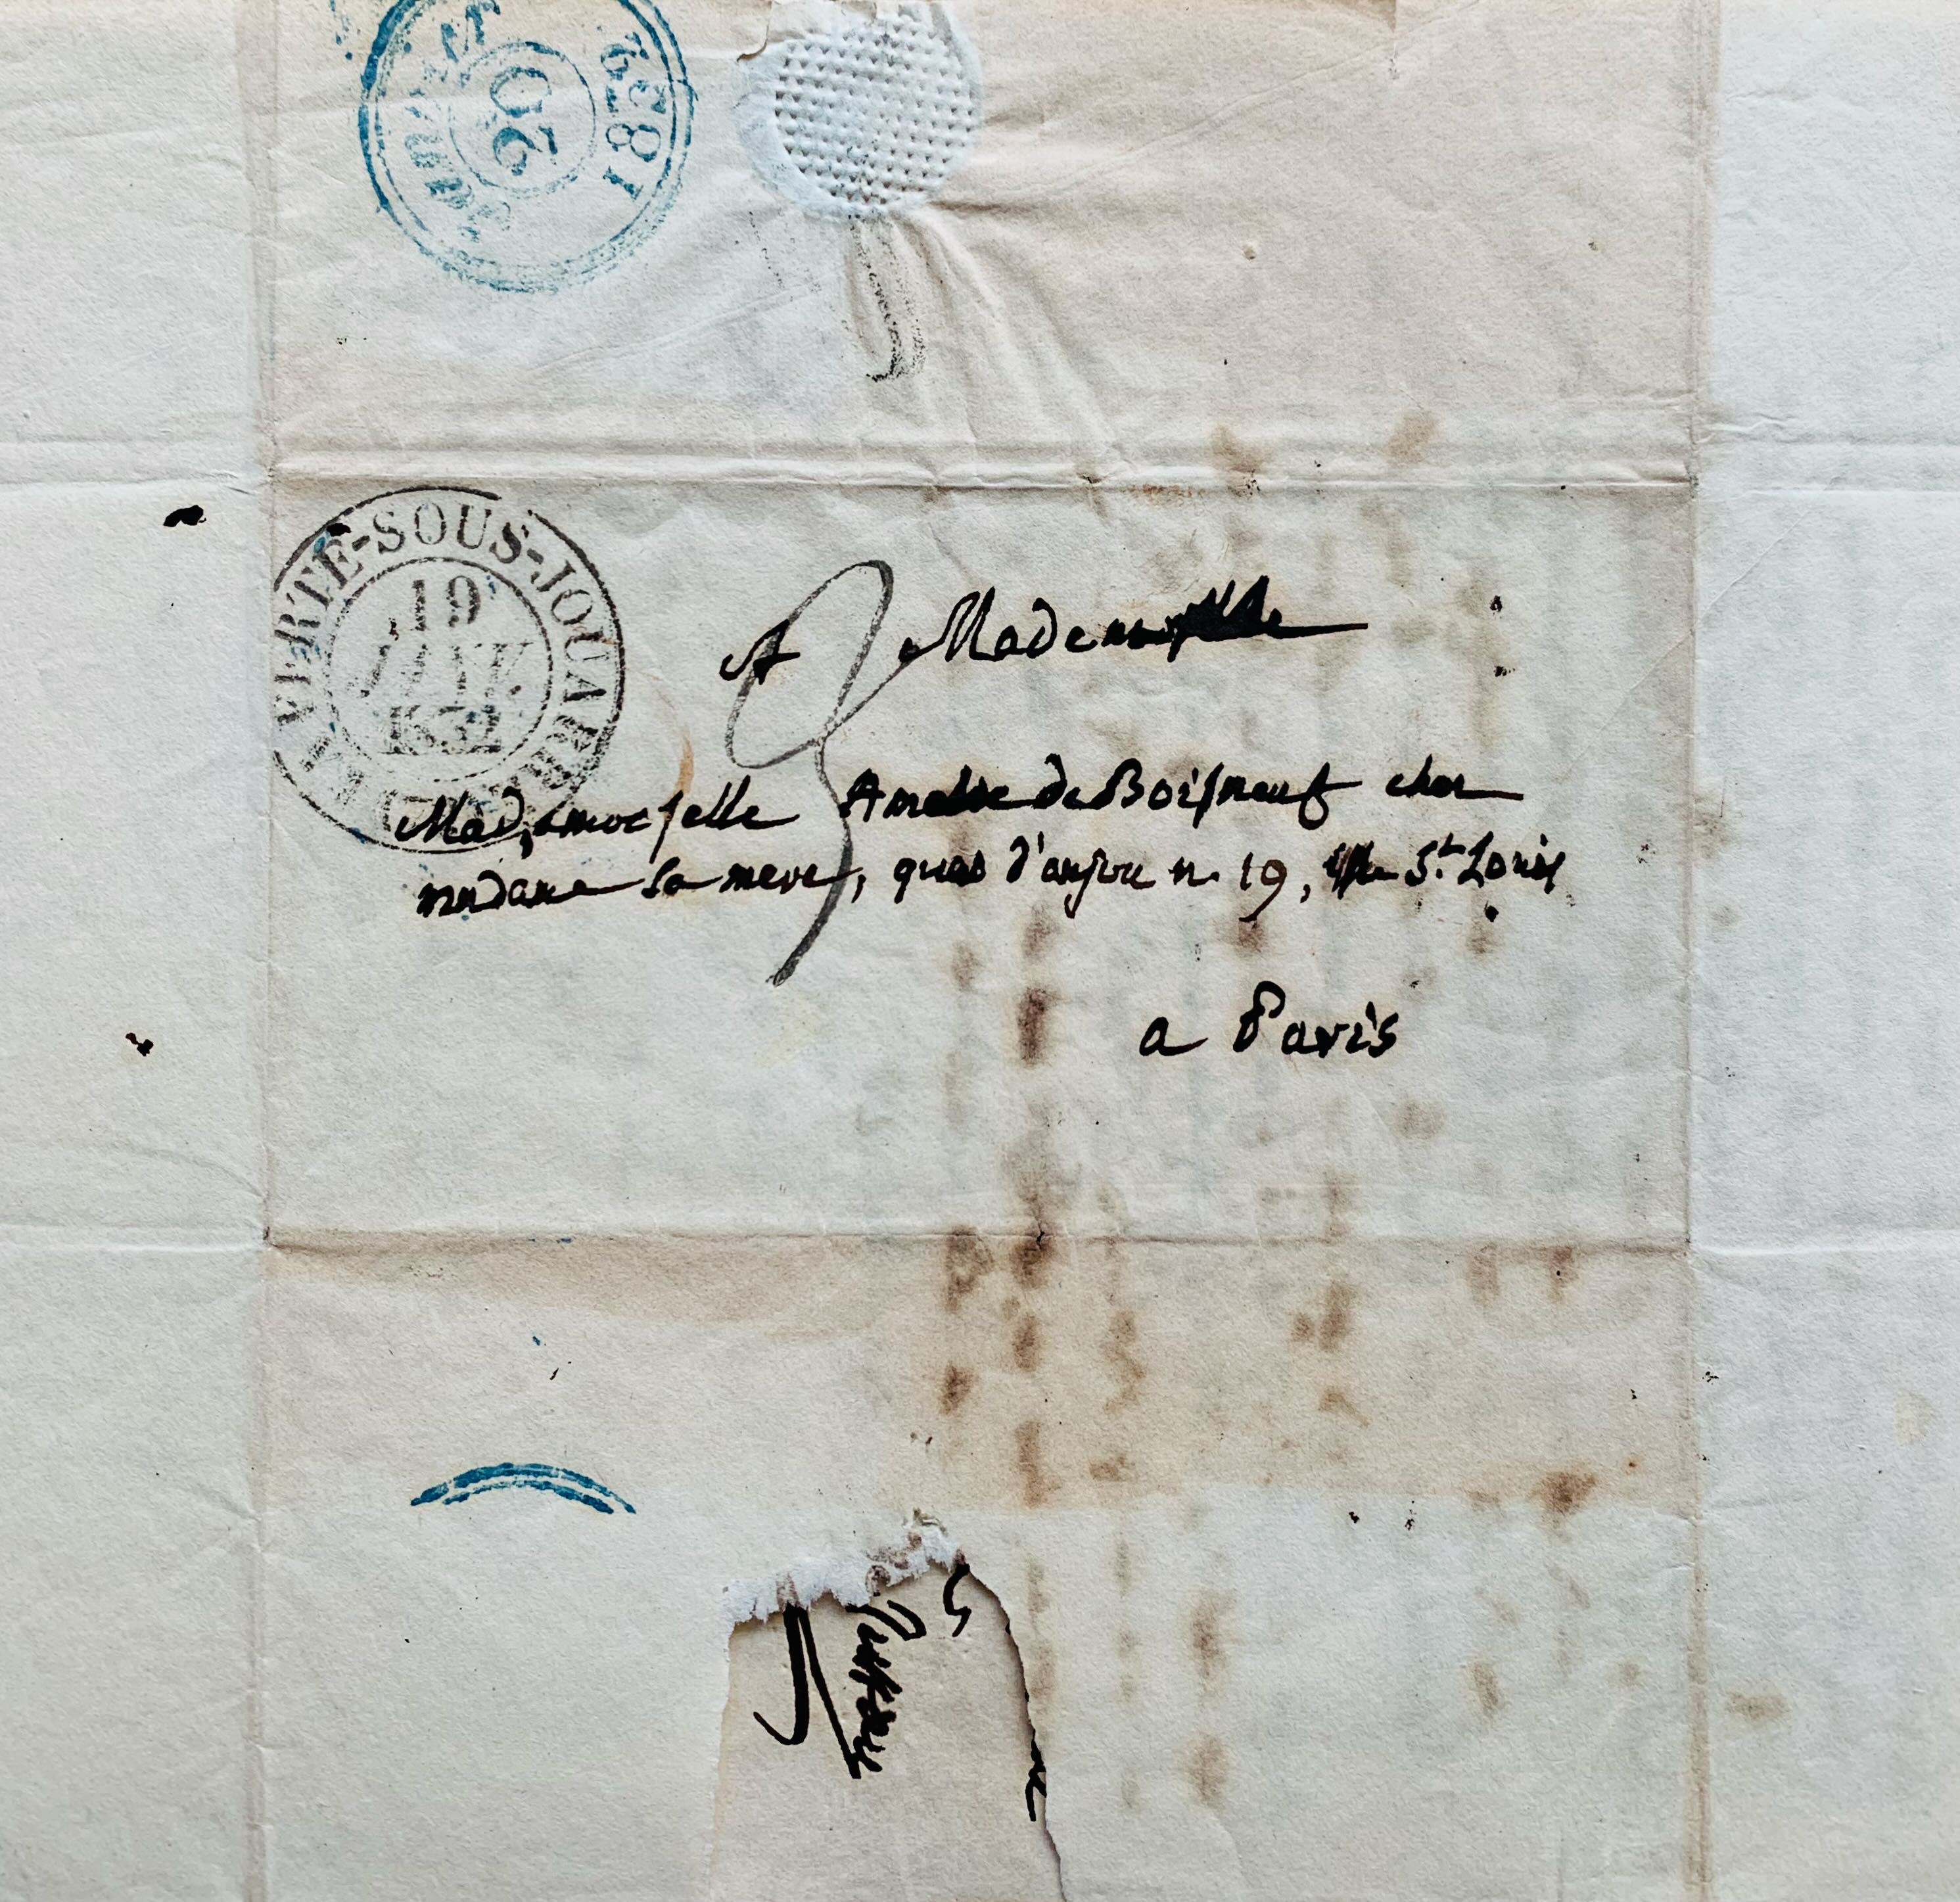 1832
20
LA FERTÉ-SOUS-JOUARRE
19
JANV.
1832
3
A Mademoiselle
Mademoiselle Amelie de Boisneuf chez
madame sa mere, quai d'anjou n. 19, Isle St. Louis
a Paris